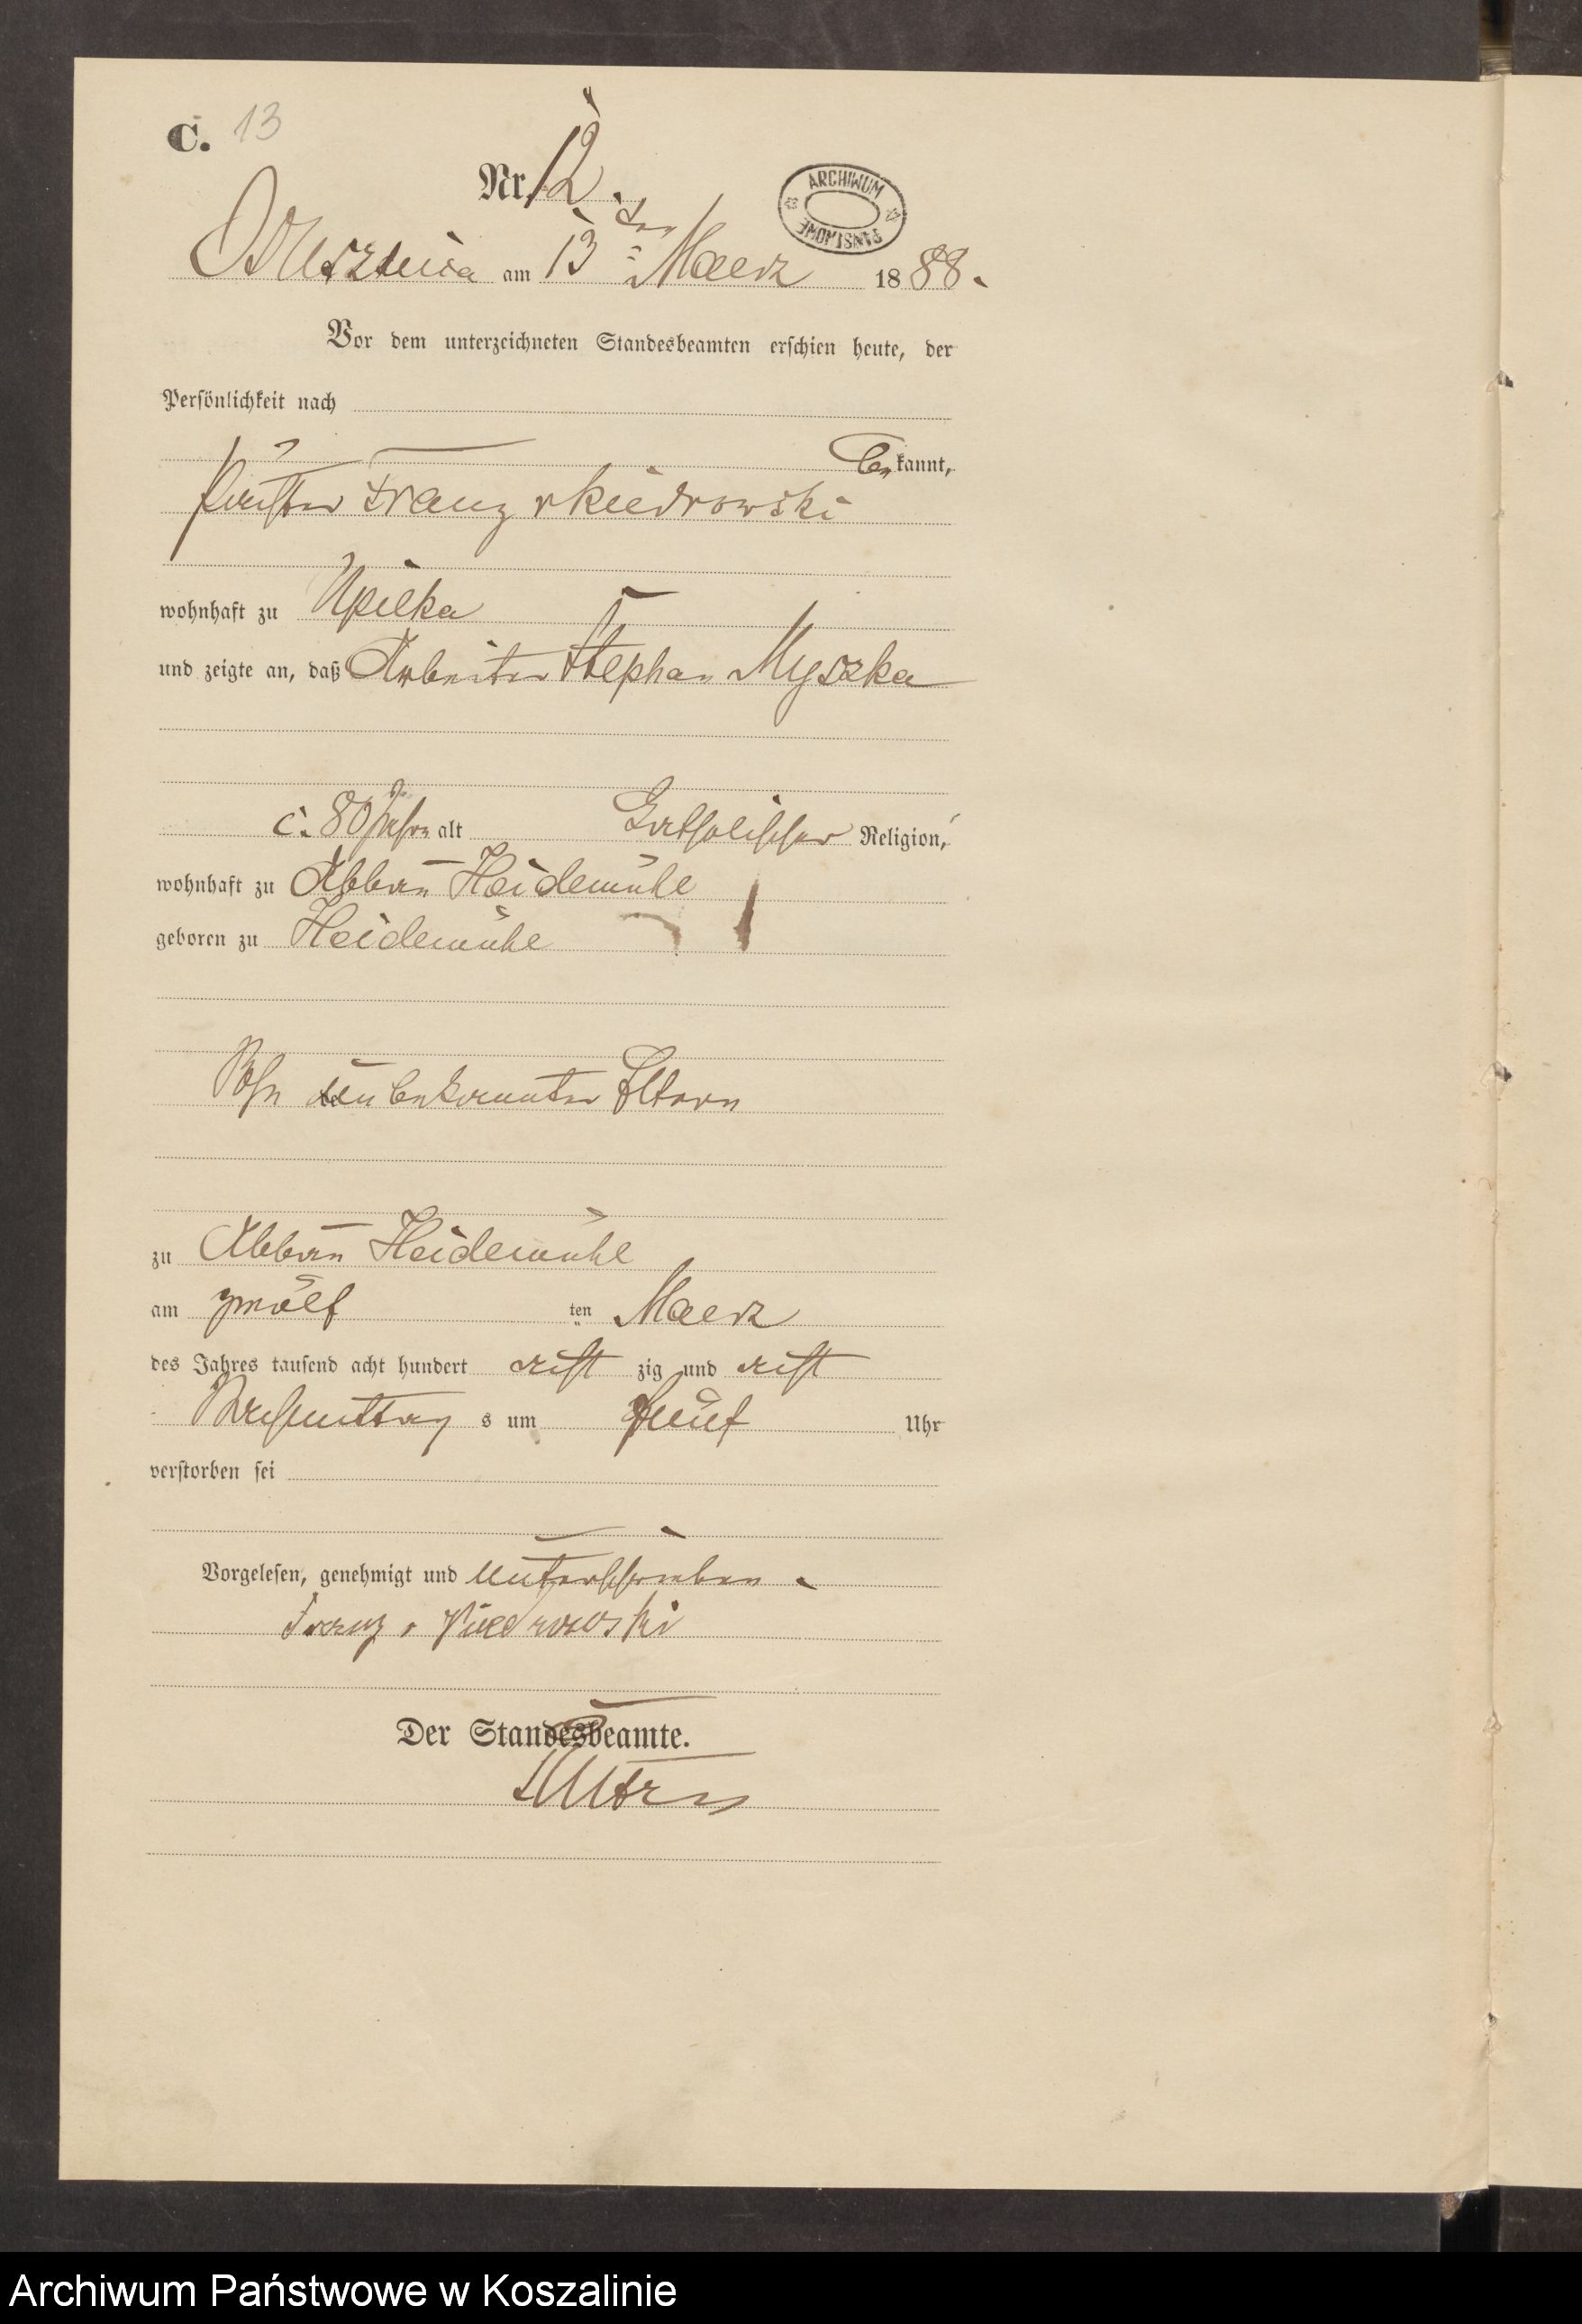 C. 13
Nr. 12.
ARCHIWUM PAŃSTWOWE
am 13ten Maerz 1888.
Vor dem unterzeichneten Standesbeamten erschien heute, der
Persönlichkeit nach
bekannt,
Franz v Kiedrowski
wohnhaft zu Upilka
und zeigte an, daß Arbeiter Stephan Myszka
c. 80 Jahre alt katholischer Religion,
wohnhaft zu Abbau Heidemühl
geboren zu Heidemühl
Sohn unbekannter Eltern
zu Abbau Heidemühl
am zwölf ten Maerz
des Jahres tausend acht hundert acht zig und acht
Nachmittag s um fünf Uhr
verstorben sei
Vorgelesen, genehmigt und unterschrieben.
Franz v Kiedrowski
Der Standesbeamte.
Archiwum Państwowe w Koszalinie